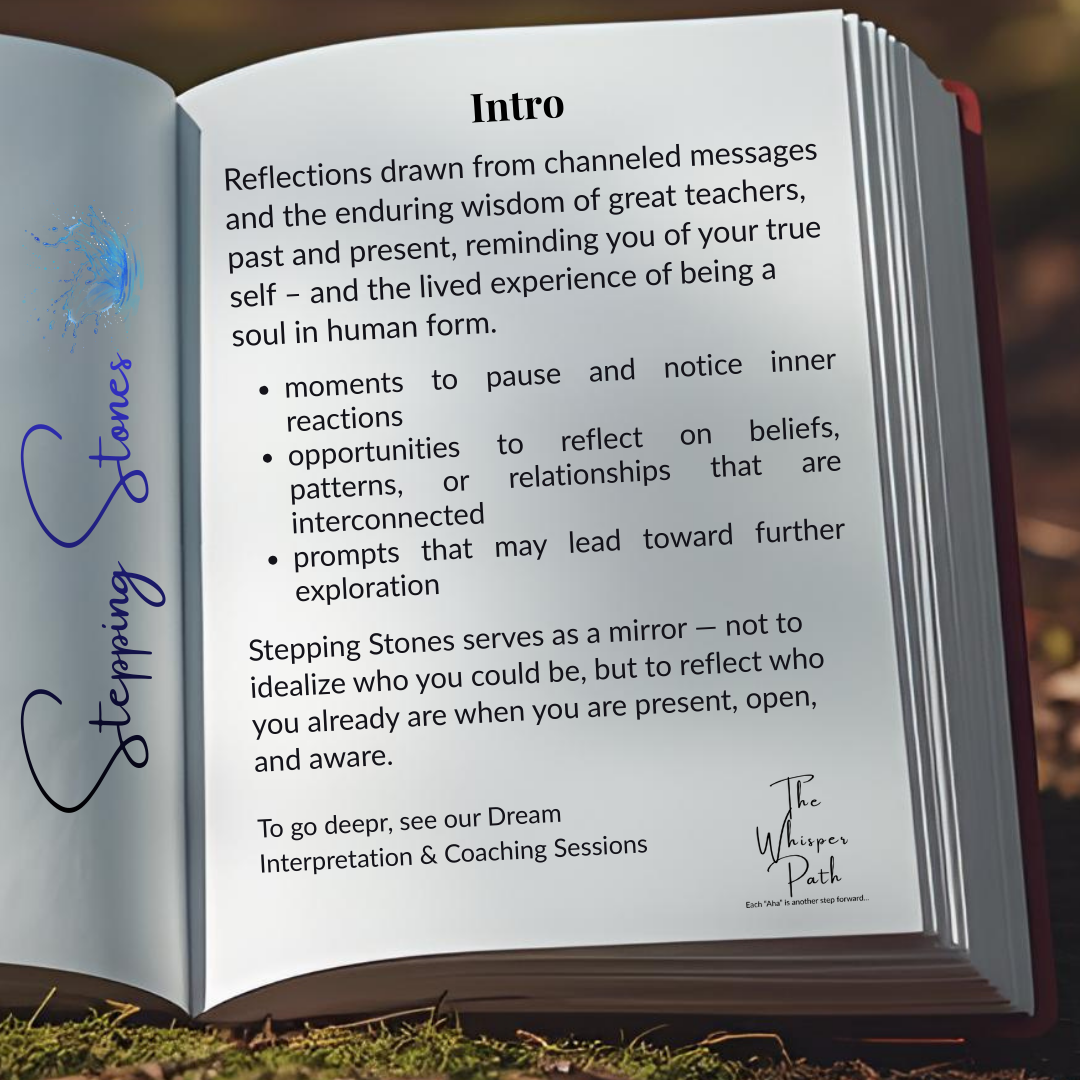 Stepping Stones
Intro
Reflections drawn from channeled messages
and the enduring wisdom of great teachers,
past and present, reminding you of your true
self – and the lived experience of being a
soul in human form.
• moments to pause and notice inner
reactions
• opportunities to reflect on beliefs,
patterns, or relationships that are
interconnected
• prompts that may lead toward further
exploration
Stepping Stones serves as a mirror — not to
idealize who you could be, but to reflect who
you already are when you are present, open,
and aware.
To go deepr, see our Dream
Interpretation & Coaching Sessions
The
Whisper
Path
Each "Aha" is another step forward...